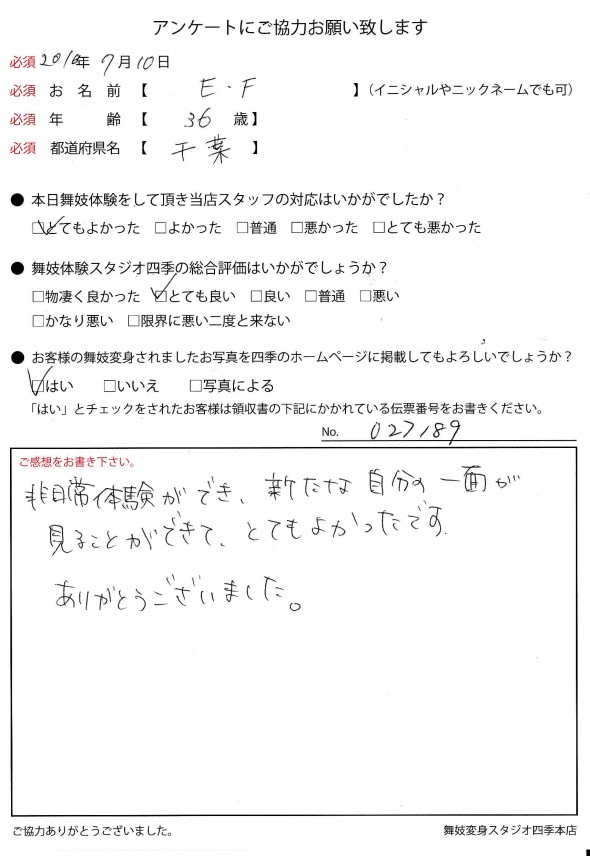 アンケートにご協力お願い致します
必須 2010年 7月10日
必須 お名前【 E・F 】（イニシャルやニックネームでも可）
必須 年齢【 36 歳】
必須 都道府県名【 千葉 】
● 本日舞妓体験をして頂き当店スタッフの対応はいかがでしたか？
☑とてもよかった □よかった □普通 □悪かった □とても悪かった
● 舞妓体験スタジオ四季の総合評価はいかがでしょうか？
□物凄く良かった ☑とても良い □良い □普通 □悪い
□かなり悪い □限界に悪い二度と来ない
● お客様の舞妓変身されましたお写真を四季のホームページに掲載してもよろしいでしょうか？
☑はい □いいえ □写真による
「はい」とチェックをされたお客様は領収書の下記にかかれている伝票番号をお書きください。
No. 027189
ご感想をお書き下さい。
非日常体験ができ、新たな自分の一面が
見ることができて、とてもよかったです.
ありがとうございました。
ご協力ありがとうございました。
舞妓変身スタジオ四季本店